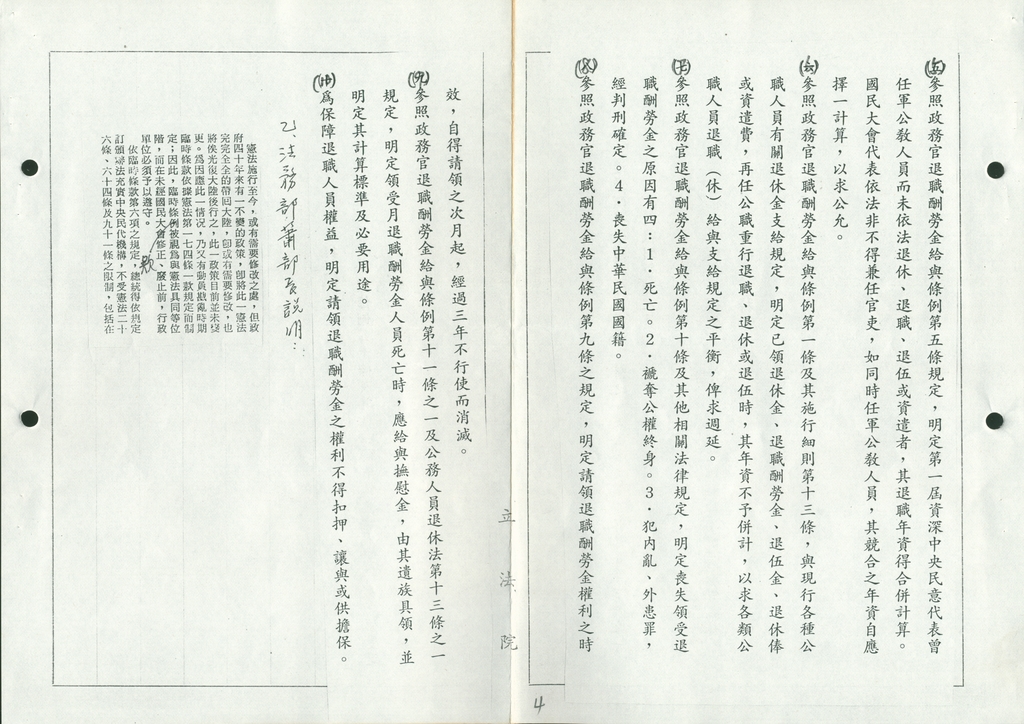 (五)參照政務官退職酬勞金給與條例第五條規定,明定第一屆資深中央民意代表曾
任軍公教人員而未依法退休、退職、退伍或資遣者,其退職年資得合併計算。
國民大會代表依法非不得兼任官吏,如同時任軍公教人員,其競合之年資自應
擇一計算,以求公允。
(六)參照政務官退職酬勞金給與條例第一條及其施行細則第十三條,與現行各種公
職人員有關退休金支給規定,明定已領退休金、退職酬勞金、退伍金、退休俸
或資遣費,再任公職重行退職、退休或退伍時,其年資不予併計,以求各類公
職人員退職(休)給與支給規定之平衡,俾求週延。
(七)參照政務官退職酬勞金給與條例第十條及其他相關法律規定,明定喪失領受退
職酬勞金之原因有四:1.死亡。2.褫奪公權終身。3.犯內亂、外患罪,
經判刑確定。4.喪失中華民國國籍。
(八)參照政務官退職酬勞金給與條例第九條之規定,明定請領退職酬勞金權利之時
立法院
4
效,自得請領之次月起,經過三年不行使而消滅。
(九)參照政務官退職酬勞金給與條例第十一條之一及公務人員退休法第十三條之一
規定,明定領受月退職酬勞金人員死亡時,應給與撫慰金,由其遺族具領,並
明定其計算標準及必要用途。
(十)為保障退職人員權益,明定請領退職酬勞金之權利不得扣押、讓與或供擔保。
乙、法務部蕭部長說明:
憲法施行至今,或有需要修改之處,但政
府四十年來有一不變的政策,卽將此一憲法
完完全全的帶回大陸,卽或有需要修改,也
將俟光復大陸後行之,此一政策目前並未變
更。為因應此一情況,乃又有動員戡亂時期
臨時條款依據憲法第一七四條一款規定而制
定;因此,臨時條款被視為與憲法具同等位
階,而在未經國民大會修正、廢止前,行政
單位必須予以遵守。
依臨時條款第六項之規定,總統得依規定
訂頒辦法充實中央民代機構,不受憲法二十
六條、六十四條及九十一條之限制,包括在